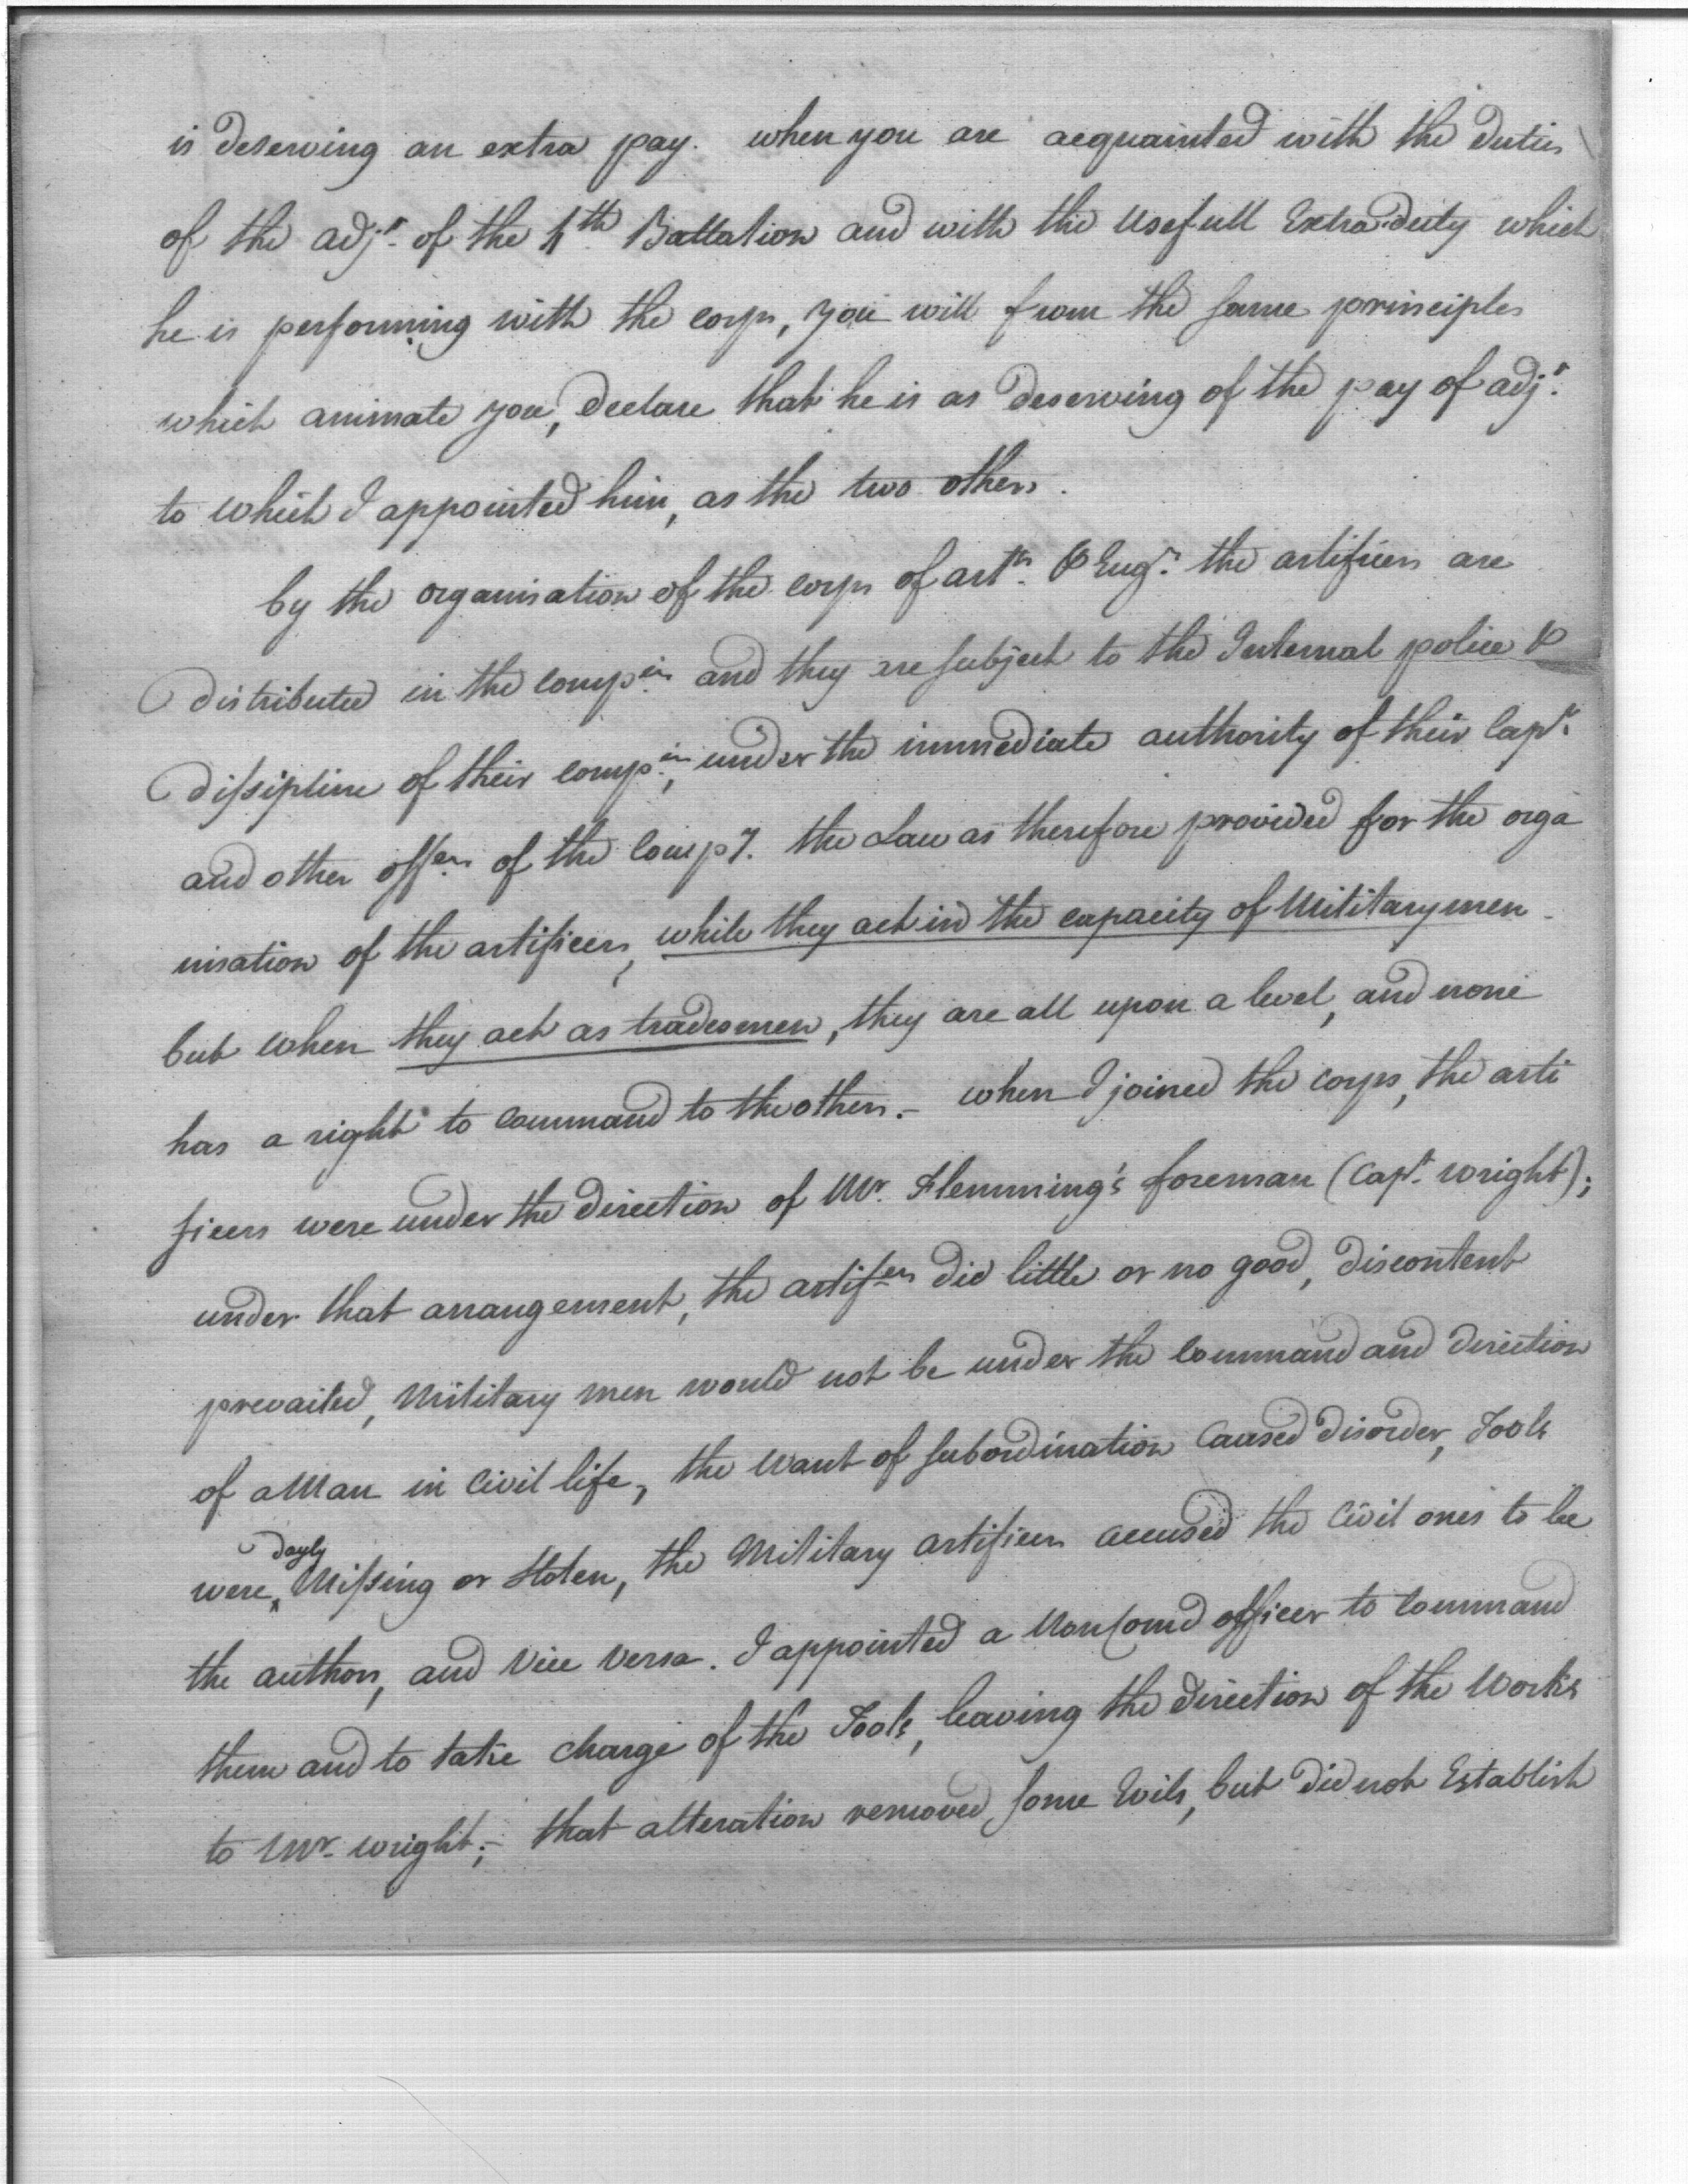 is deserving an extra pay. when you are acquainted with the duties
of the adjt. of the 4th Battalion and with the usefull Extra duty which
he is performing with the corps, you will from the same principles
which animate you, declare that he is as deserving of the pay of adjt.
to which I appointed him, as the two others.
by the organisation of the corps of artrs. & Engrs. the artificers are
distributed in the companies and they are subject to the Internal police &
dissipline of their companies, under the immediate authority of their Capt.
and other offers of the Compy. the Law as therefore provided for the orga
nisation of the artificers, while they act in the capacity of Military men -
but when they act as tradesmen, they are all upon a level, and none
has a right to command to the others. - when I joined the corps, the arti
ficers were under the direction of Mr. Flemming's foreman (Capt. wright);
under that arrangement, the artifers did little or no good, discontent
prevailed, Military men would not be under the command and direction
of a Man in Civil life, the want of subordination Caused disorder, Tools
were dayly Missing or stolen, the Military artificers accused the Civil ones to be
the authors, and vice versa. I appointed a Non Comd officer to command
them and to take charge of the Tools, leaving the direction of the works
to Mr. wright; - that alteration removed some Evils, but did not Establish